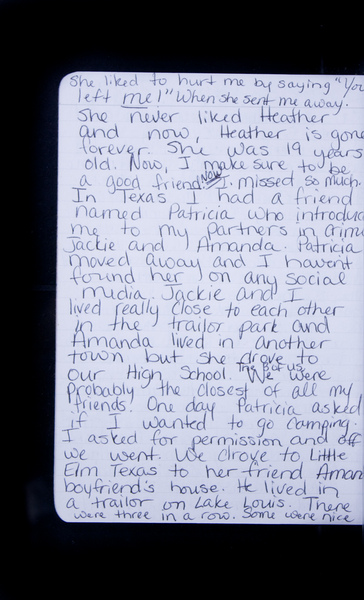 She liked to hurt me by saying "You
left me!" When she sent me away.
She never liked Heather
and now, Heather is gone
forever. She was 19 years
old. Now, I make sure to be
a good friend. Now I missed so much.
In Texas I had a friend
named Patricia who introduc
me to my partners in crime
Jackie and Amanda. Patricia
moved away and I haven't
found her on any social
media. Jackie and I
lived really close to each other
in the trailor park and
Amanda lived in another
town but she drove to
our High School. The 3 of us We were
probably the closest of all my
friends. One day Patricia asked
if I wanted to go camping.
I asked for permission and off
we went. We drove to Little
Elm Texas to her friend Aman
boyfriend's house. He lived in
a trailor on Lake Louis. There
were three in a row. Some were nice